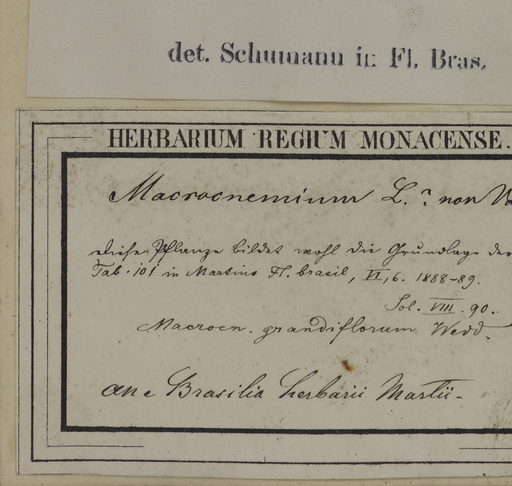 det. Schumann in Fl. Bras.
HERBARIUM REGIUM MONACENSE.
Macrocnemium L.? non
Diese Pflanze bildet wohl die Grundlage der
Tab. 101 in Martius Fl. brasil, VI, 6. 1888-89.
Sol. VIII. 90.
Macrocn. grandiflorum Wedd.
Brasilia herbarii Martii-